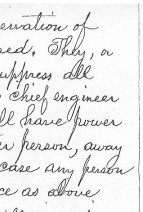 ervation of
sed. They, or
suppress all
chief engineer
ll have power
er person, away
case any person
ce as above